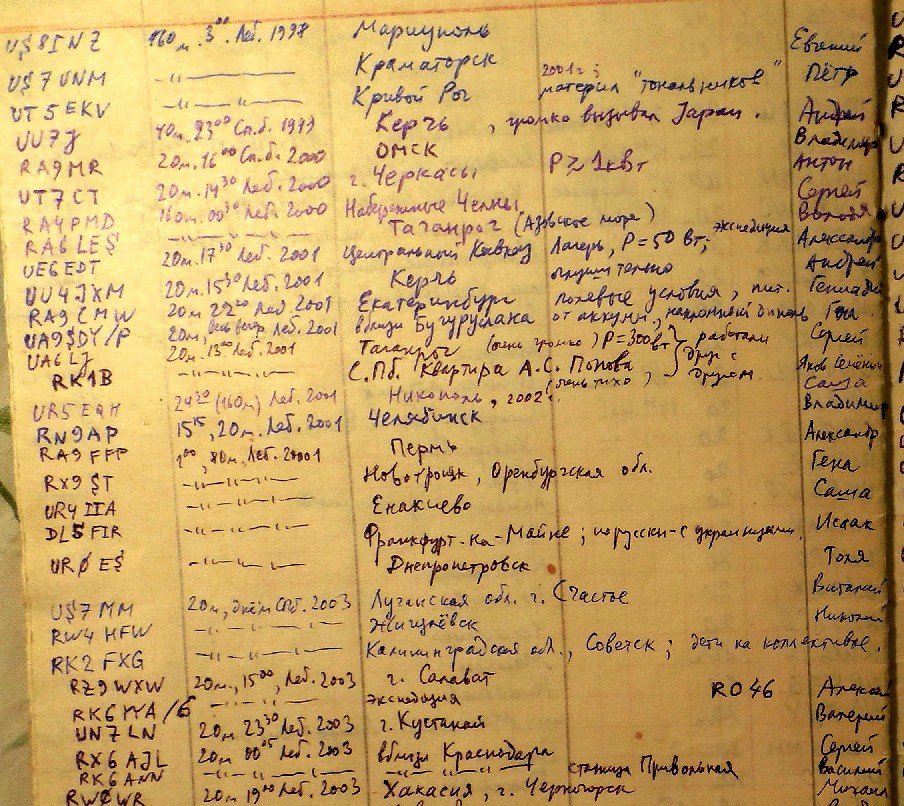 US8INZ 160м. 3⁰⁰ Леб. 1998 Мариуполь Евгений
US7UNM —"— Краматорск 2001г; Пётр
UT5EKV —"—"— Кривой Рог материл "тональников"
UU7J 40м. 23⁰⁰ Сп.б. 1999 Керчь, громко вызывал Japan. Андрей
RA9MR 20м. 16⁰⁰ Сп.б. 2000 Омск P≥1квт Владимир
UT7CT 20м. 14³⁰ Леб. 2000 г. Черкассы Антон
RA4PMD 160м. 00³⁰ Леб. 2000 Набережные Челны Сергей
RA6LES —"—"—"— Таганрог (Азовское море) Володя
UE6EDT 20м. 17³⁰ Леб. 2001 Центральный Кавказ Лагерь, P=50 Вт; экспедиция Александр
UU4JXM 20м. 15³⁰ Леб. 2001 Керчь Андрей
RA9CMW 20м 22²⁰ Леб. 2001 Екатеринбург Геннадий
UA9SDY/P 20м, Леб. 2001 вблизи Бугуруслана полевые условия, пит. от аккум., наклонный диполь Гена
UA6LJ 20м. 15⁰⁰ Леб. 2001 Таганрог (очень громко) P=300вт работали друг с другом Сергей
RK1B —"—"—"— С.Пб. Квартира А.С. Попова (очень тихо), Яков Семёныч
UR5EQH 24²⁰ (160м) Леб. 2001 Никополь, 2002г. Саша
RN9AP 15¹⁵, 20м. Леб. 2001 Челябинск Владимир
RA9FFP 1⁰⁰, 80м. Леб. 20001 Пермь Александр
RX9ST —"—"—"— Новотроицк, Оренбургская обл. Гена
UR4IIA —"—"—"— Енакиево Саша
DL5FIR —"—"—"— Франкфурт-на-Майне; по русски-с украинцами. Исаак
URØES —"—"—"— Днепропетровск Толя
US7MM 20м, днём СПб. 2003 Луганская обл. г. Счастье Виталий
RW4HFW —"—"—"— Жигулёвск Николай
RK2FXG —"—"—"— Калининградская обл., Советск; дети на коллективке.
RZ9WXW 20м, 15⁰⁰, Леб. 2003 г. Салават RO46 Алексей
RK6YYA/6 —"—"— экспедиция
UN7LN 20м 23³⁰ Леб. 2003 г. Кустанай Валерий
RX6AJL 20м 00⁰⁵ Леб. 2003 вблизи Краснодара Сергей
RK6ANN —"—"—"— —"—"—"— станица Привольная Василий
RWØWR 20м 19⁰⁰ Леб. 2003 Хакасия, г. Черногорск Михаил